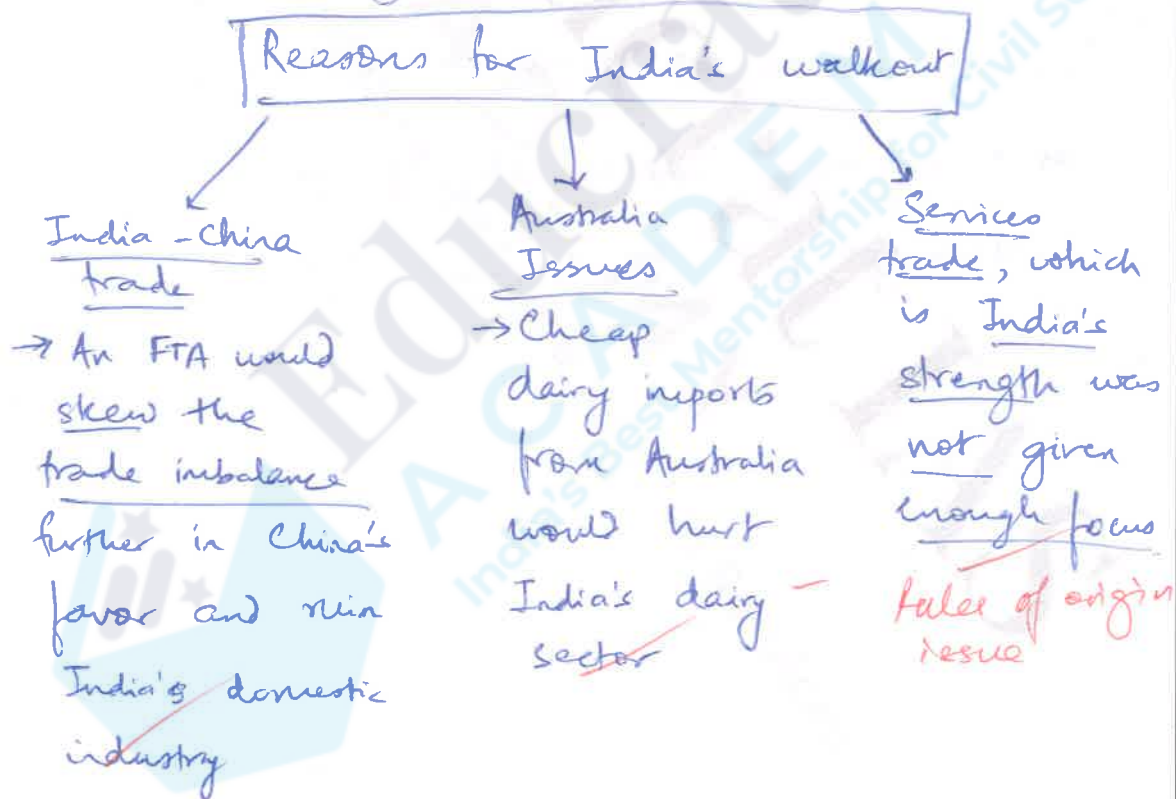 Reasons for India's walkout
India - China
trade
→ An FTA would
skew the
trade imbalance
further in China's
favor and ruin
India's domestic
industry
Australia
Issues
→ Cheap
dairy imports
from Australia
would hurt
India's dairy
sector
Services
trade, which
is India's
strength was
not given
enough focus
Rules of origin
issue
Educra
ACADEM
India's Best Mentorship for Civil Se